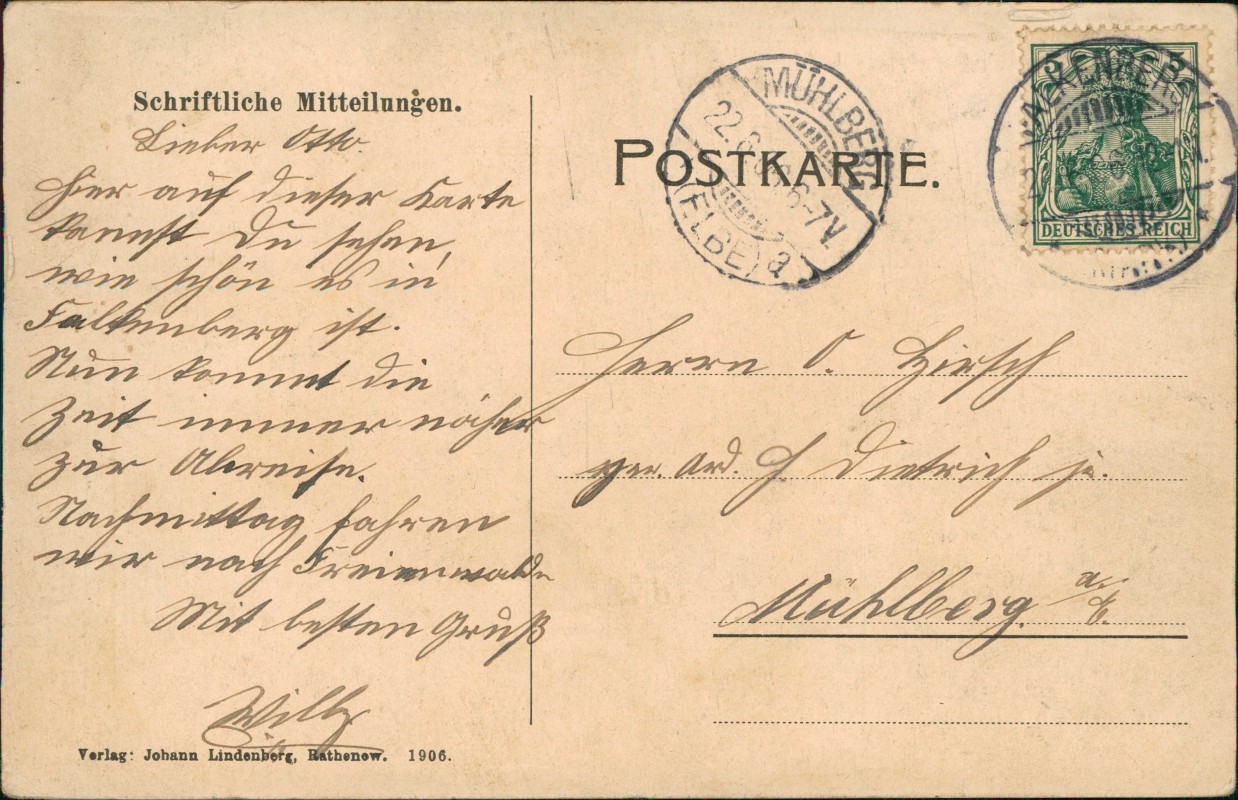 Schriftliche Mitteilungen.
Lieber Otto.
Hier auf dieser Karte
kannst Du sehen,
wie schön es in
Falkenberg ist.
Nun kommt die
Zeit immer näher
zur Abreise.
Nachmittag fahren
wir nach Freienwalde
Mit besten Gruß
Willy
Verlag: Johann Lindenberg, Rathenow. 1906.
POSTKARTE.
MÜHLBERG
22.6. 6-7V.
(ELBE) a
FALKENBERG
5 5
DEUTSCHES REICH
Herrn O. Hirsch
p. Adr. H. Dietrich ju.
Mühlberg a/E.